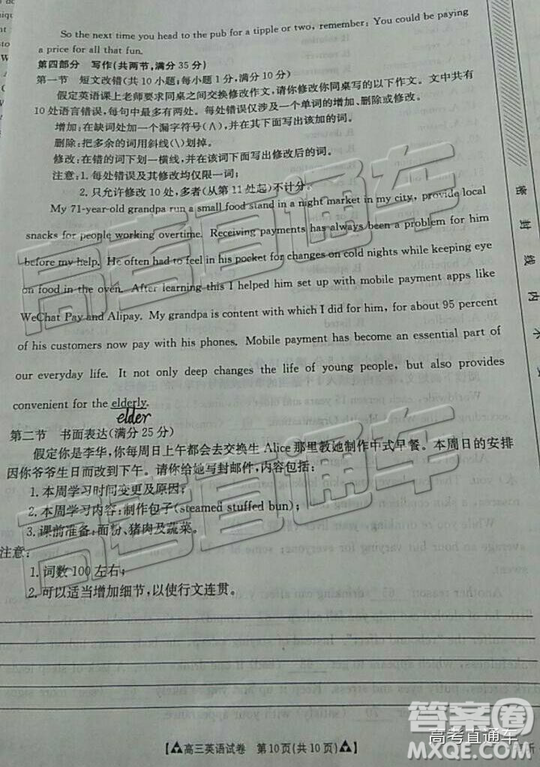 So the next time you head to the pub for a tipple or two, remember: You could be paying
a price for all that fun.
第四部分 写作(共两节,满分35分)
第一节 短文改错(共10小题;每小题1分,满分10分)
假定英语课上老师要求同桌之间交换修改作文,请你修改你同桌写的以下作文。文中共有
10处语言错误,每句中最多有两处。每处错误仅涉及一个单词的增加、
删除或修改。
增加:在缺词处加一个漏字符号(∧),并在其下面写出该加的词。
删除:把多余的词用斜线(\)划掉。
修改:在错的词下划一横线,并在该词下面写出修改后的词。
注意:1.每处错误及其修改均仅限一词;
2.只允许修改10处,多者(从第11处起)不计分。
My 71-year-old grandpa run a small food stand in a night market in my city, provide local
snacks for people working overtime. Receiving payments has always been a problem for him
before my help. He often had to feel in his pocket for changes on cold nights while keeping eye
on food in the oven. After learning this I helped him set up with mobile payment apps like
WeChat Pay and Alipay. My grandpa is content with which I did for him, for about 95 percent
of his customers now pay with his phones. Mobile payment has become an essential part of
our everyday life. It not only deeply changes the life of young people, but also provides
convenient for the elderly.
elder
第二节 书面表达(满分25分)
假定你是李华,你每周日上午都会去交换生Alice那里教她制作中式早餐。本周日的安排
因你爷爷生日而改到下午。请你给她写封邮件,内容包括:
1.本周学习时间变更及原因;
2.本周学习内容:制作包子(steamed stuffed bun);
3.课前准备:面粉、猪肉及蔬菜。
注意:
1.词数100左右;
2.可以适当增加细节,以使行文连贯。
【高三英语试卷 第10页(共10页)】
密封线内
高考直通车
答案圈
高考直通车
MXQE.COM